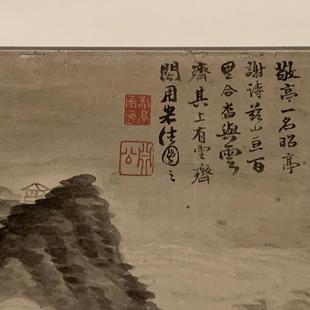 敬亭一名昭亭
謝诗茲山亘百
里合沓與雲
齊其上有雲齊
閣用米法圖之